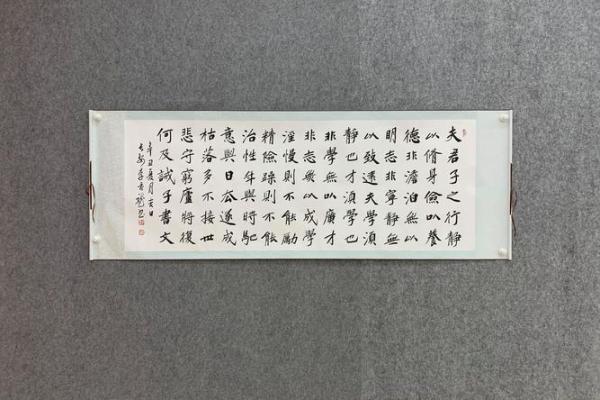 夫君子之行静
以脩身儉以養
德非澹泊無以
明志非寧静無
以致遠夫學須
静也才須學也
非學無以廣才
非志無以成學
淫慢則不能勵
精險躁則不能
治性年與時馳
意與日去遂成
枯落多不接世
悲守窮廬將復
何及誡子書文
辛丑夏月吉日
长安李